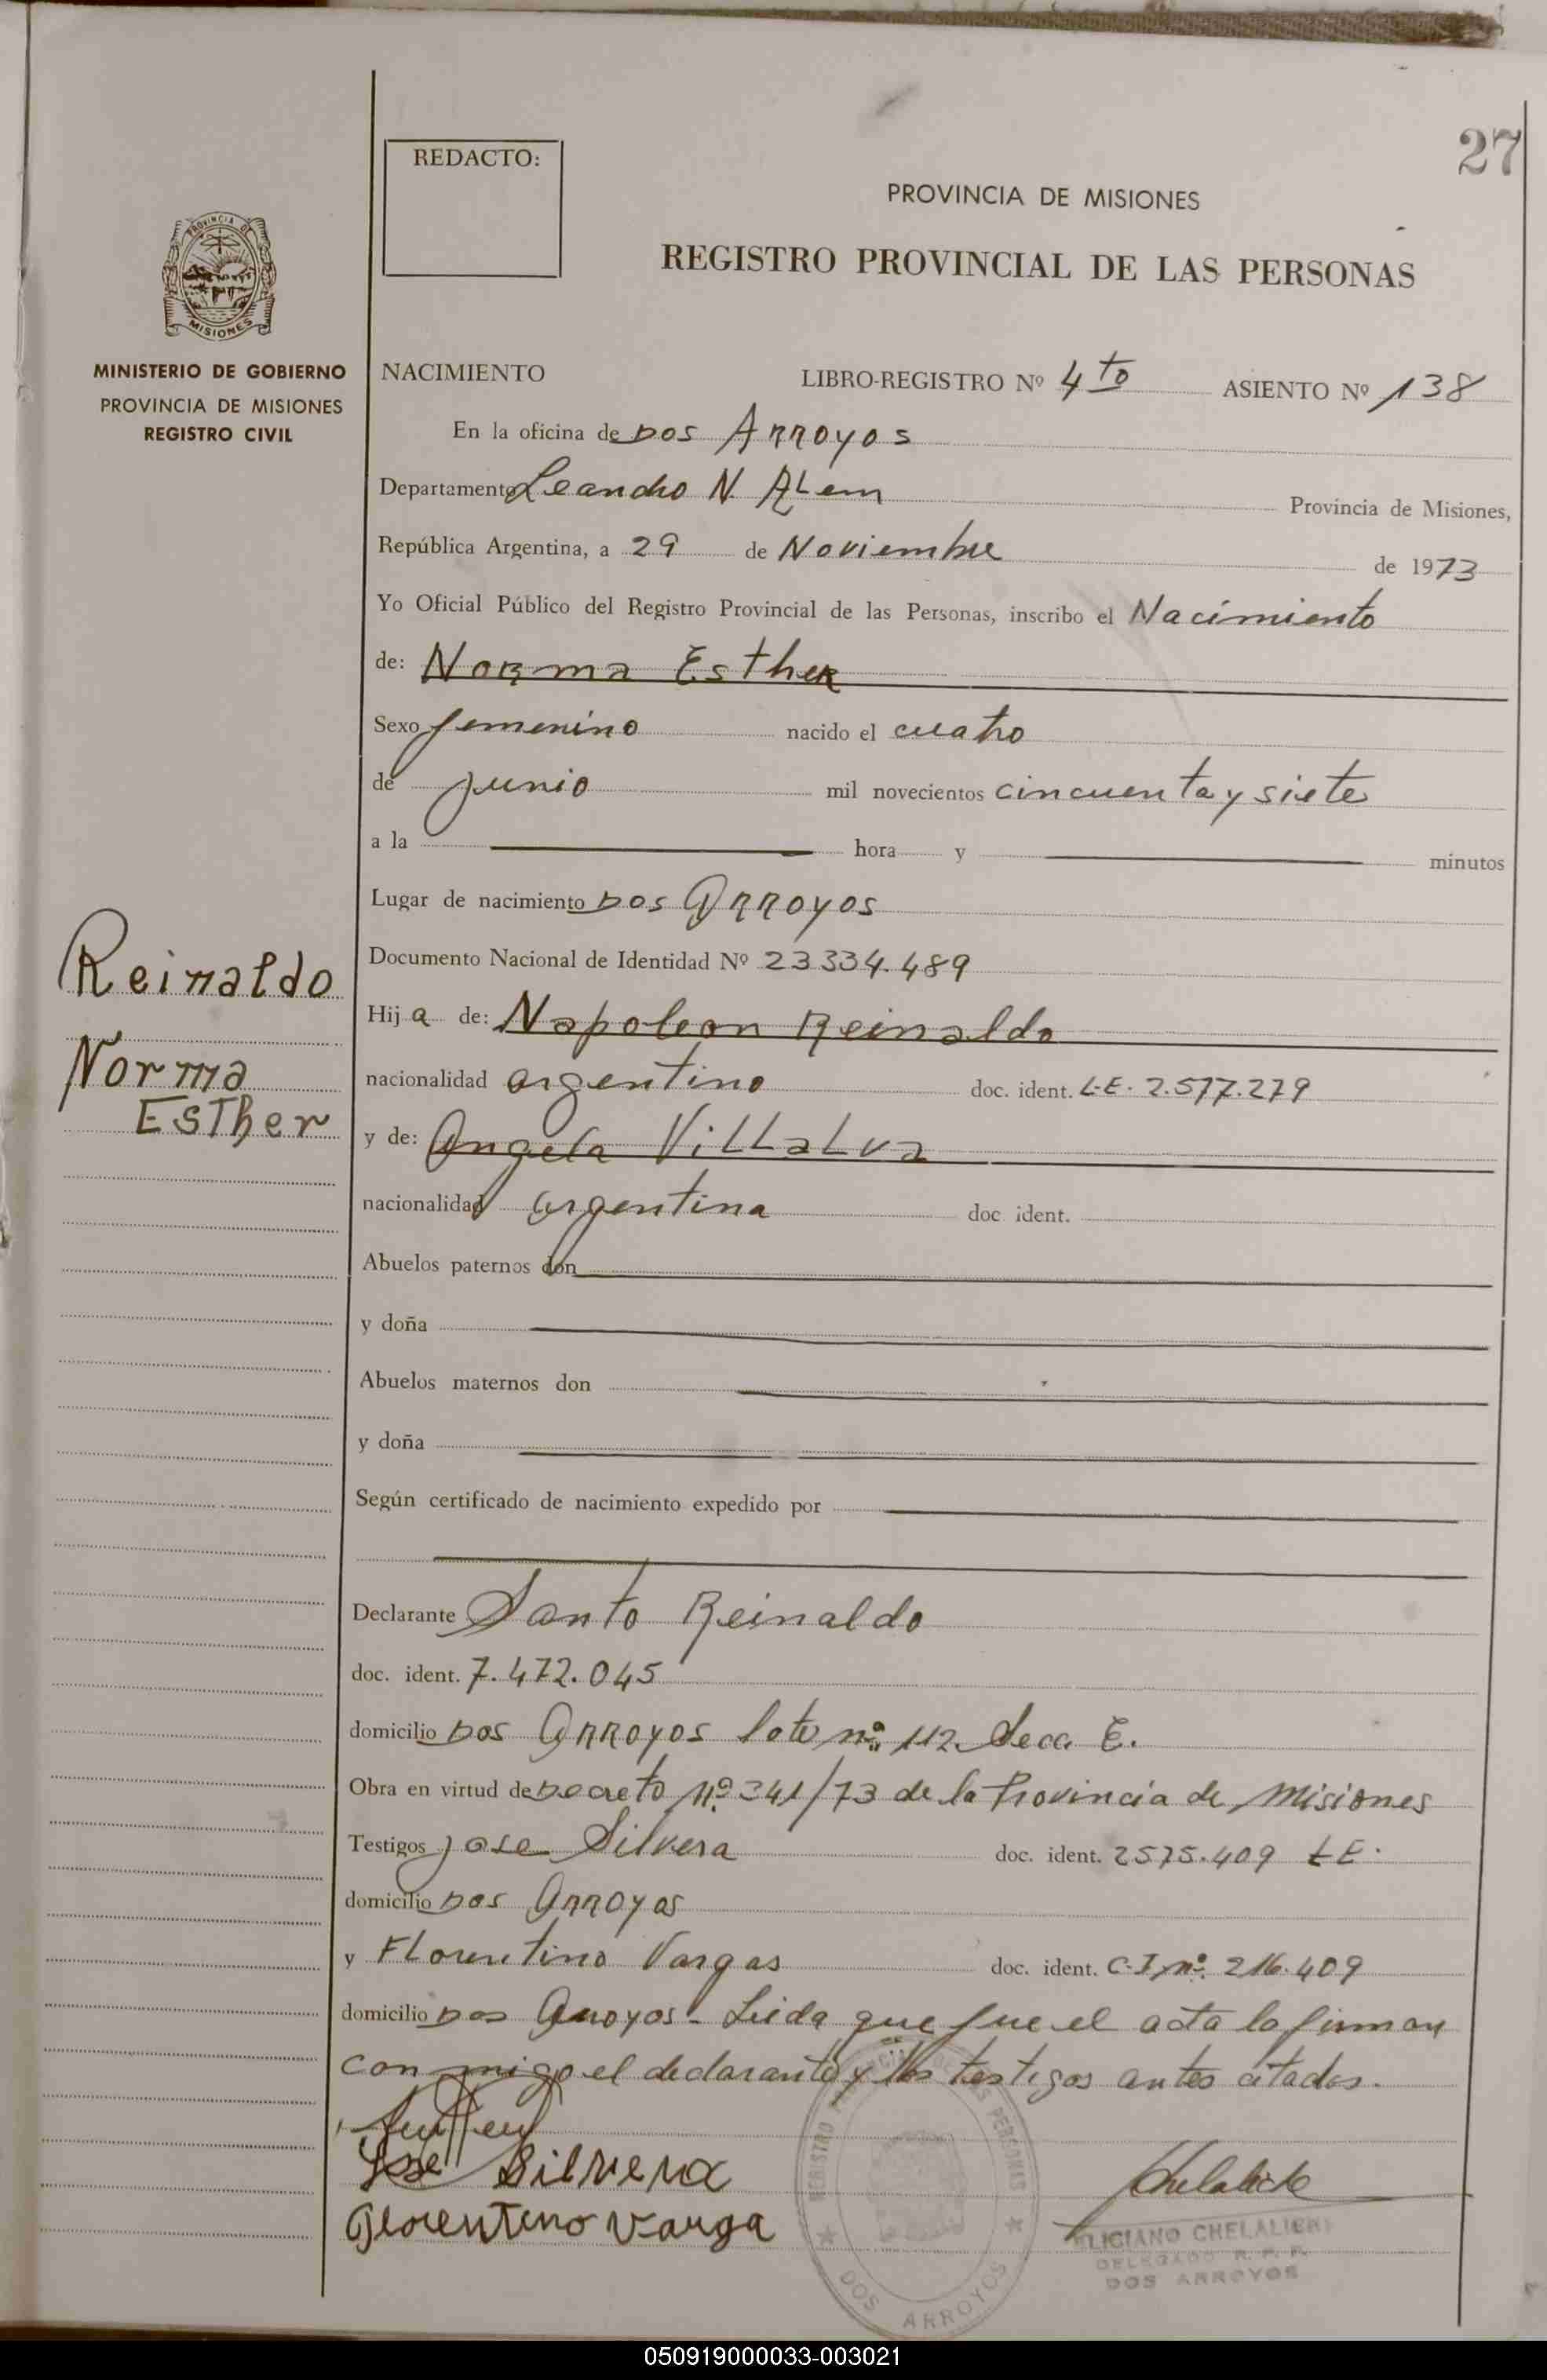 27
REDACTO:
PROVINCIA DE MISIONES
REGISTRO PROVINCIAL DE LAS PERSONAS
PROVINCIA DE
MISIONES
MINISTERIO DE GOBIERNO
PROVINCIA DE MISIONES
REGISTRO CIVIL
NACIMIENTO LIBRO-REGISTRO Nº 4to ASIENTO Nº 138
En la oficina de Dos Arroyos
Departamento Leandro N. ALem Provincia de Misiones,
República Argentina, a 29 de Noviembre de 1973
Yo Oficial Público del Registro Provincial de las Personas, inscribo el Nacimiento
de: Norma Esther
Sexo femenino nacido el cuatro
de junio mil novecientos cincuenta y siete
a la hora y minutos
Lugar de nacimiento Dos Arroyos
Documento Nacional de Identidad Nº 23334.489
Reinaldo
Norma
Esther
Hija de: Napoleon Reinaldo
nacionalidad argentino doc. ident. L.E. 2.577.279
y de: Angela Villalva
nacionalidad argentina doc. ident.
Abuelos paternos don
y doña
Abuelos maternos don
y doña
Según certificado de nacimiento expedido por
Declarante Santo Reinaldo
doc. ident. 7.472.045
domicilio Dos Arroyos lote nº 112 Secc E.
Obra en virtud de Decreto Nº 341/73 de la Provincia de Misiones
Testigos Jose Silvera doc. ident. 2575.409 LE.
domicilio Dos Arroyos
y Florentino Vargas doc. ident. C.I. nº 216.409
domicilio Dos Arroyos - Leida que fue el acta la firman
con migo el declarante y los testigos antes citados.
Jose Silvera
Florentino Varga
REGISTRO PROVINCIAL DE LAS PERSONAS
DOS ARROYOS
Chelaliche
LICIANO CHELALICHE
DELEGADO R. P. P.
DOS ARROYOS
050919000033-003021